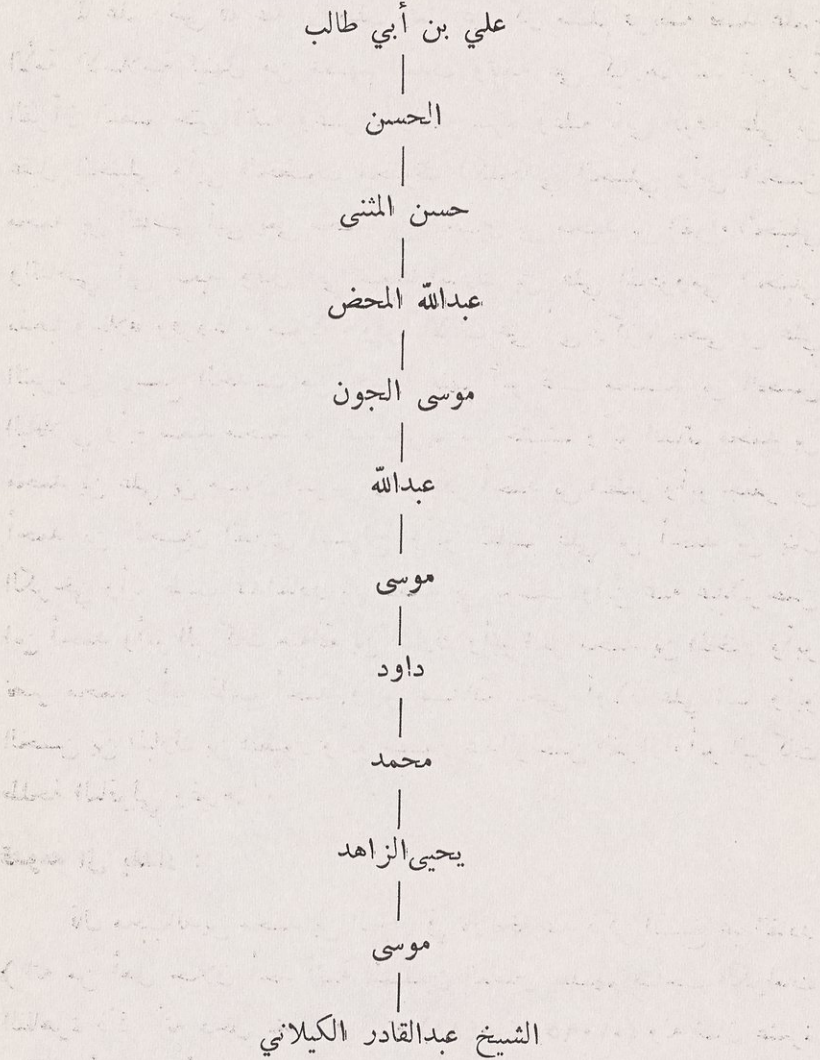 علي بن أبي طالب
الحسن
حسن المثنى
عبدالله المحض
موسى الجون
عبدالله
موسى
داود
محمد
يحيى الزاهد
موسى
الشيخ عبدالقادر الكيلاني